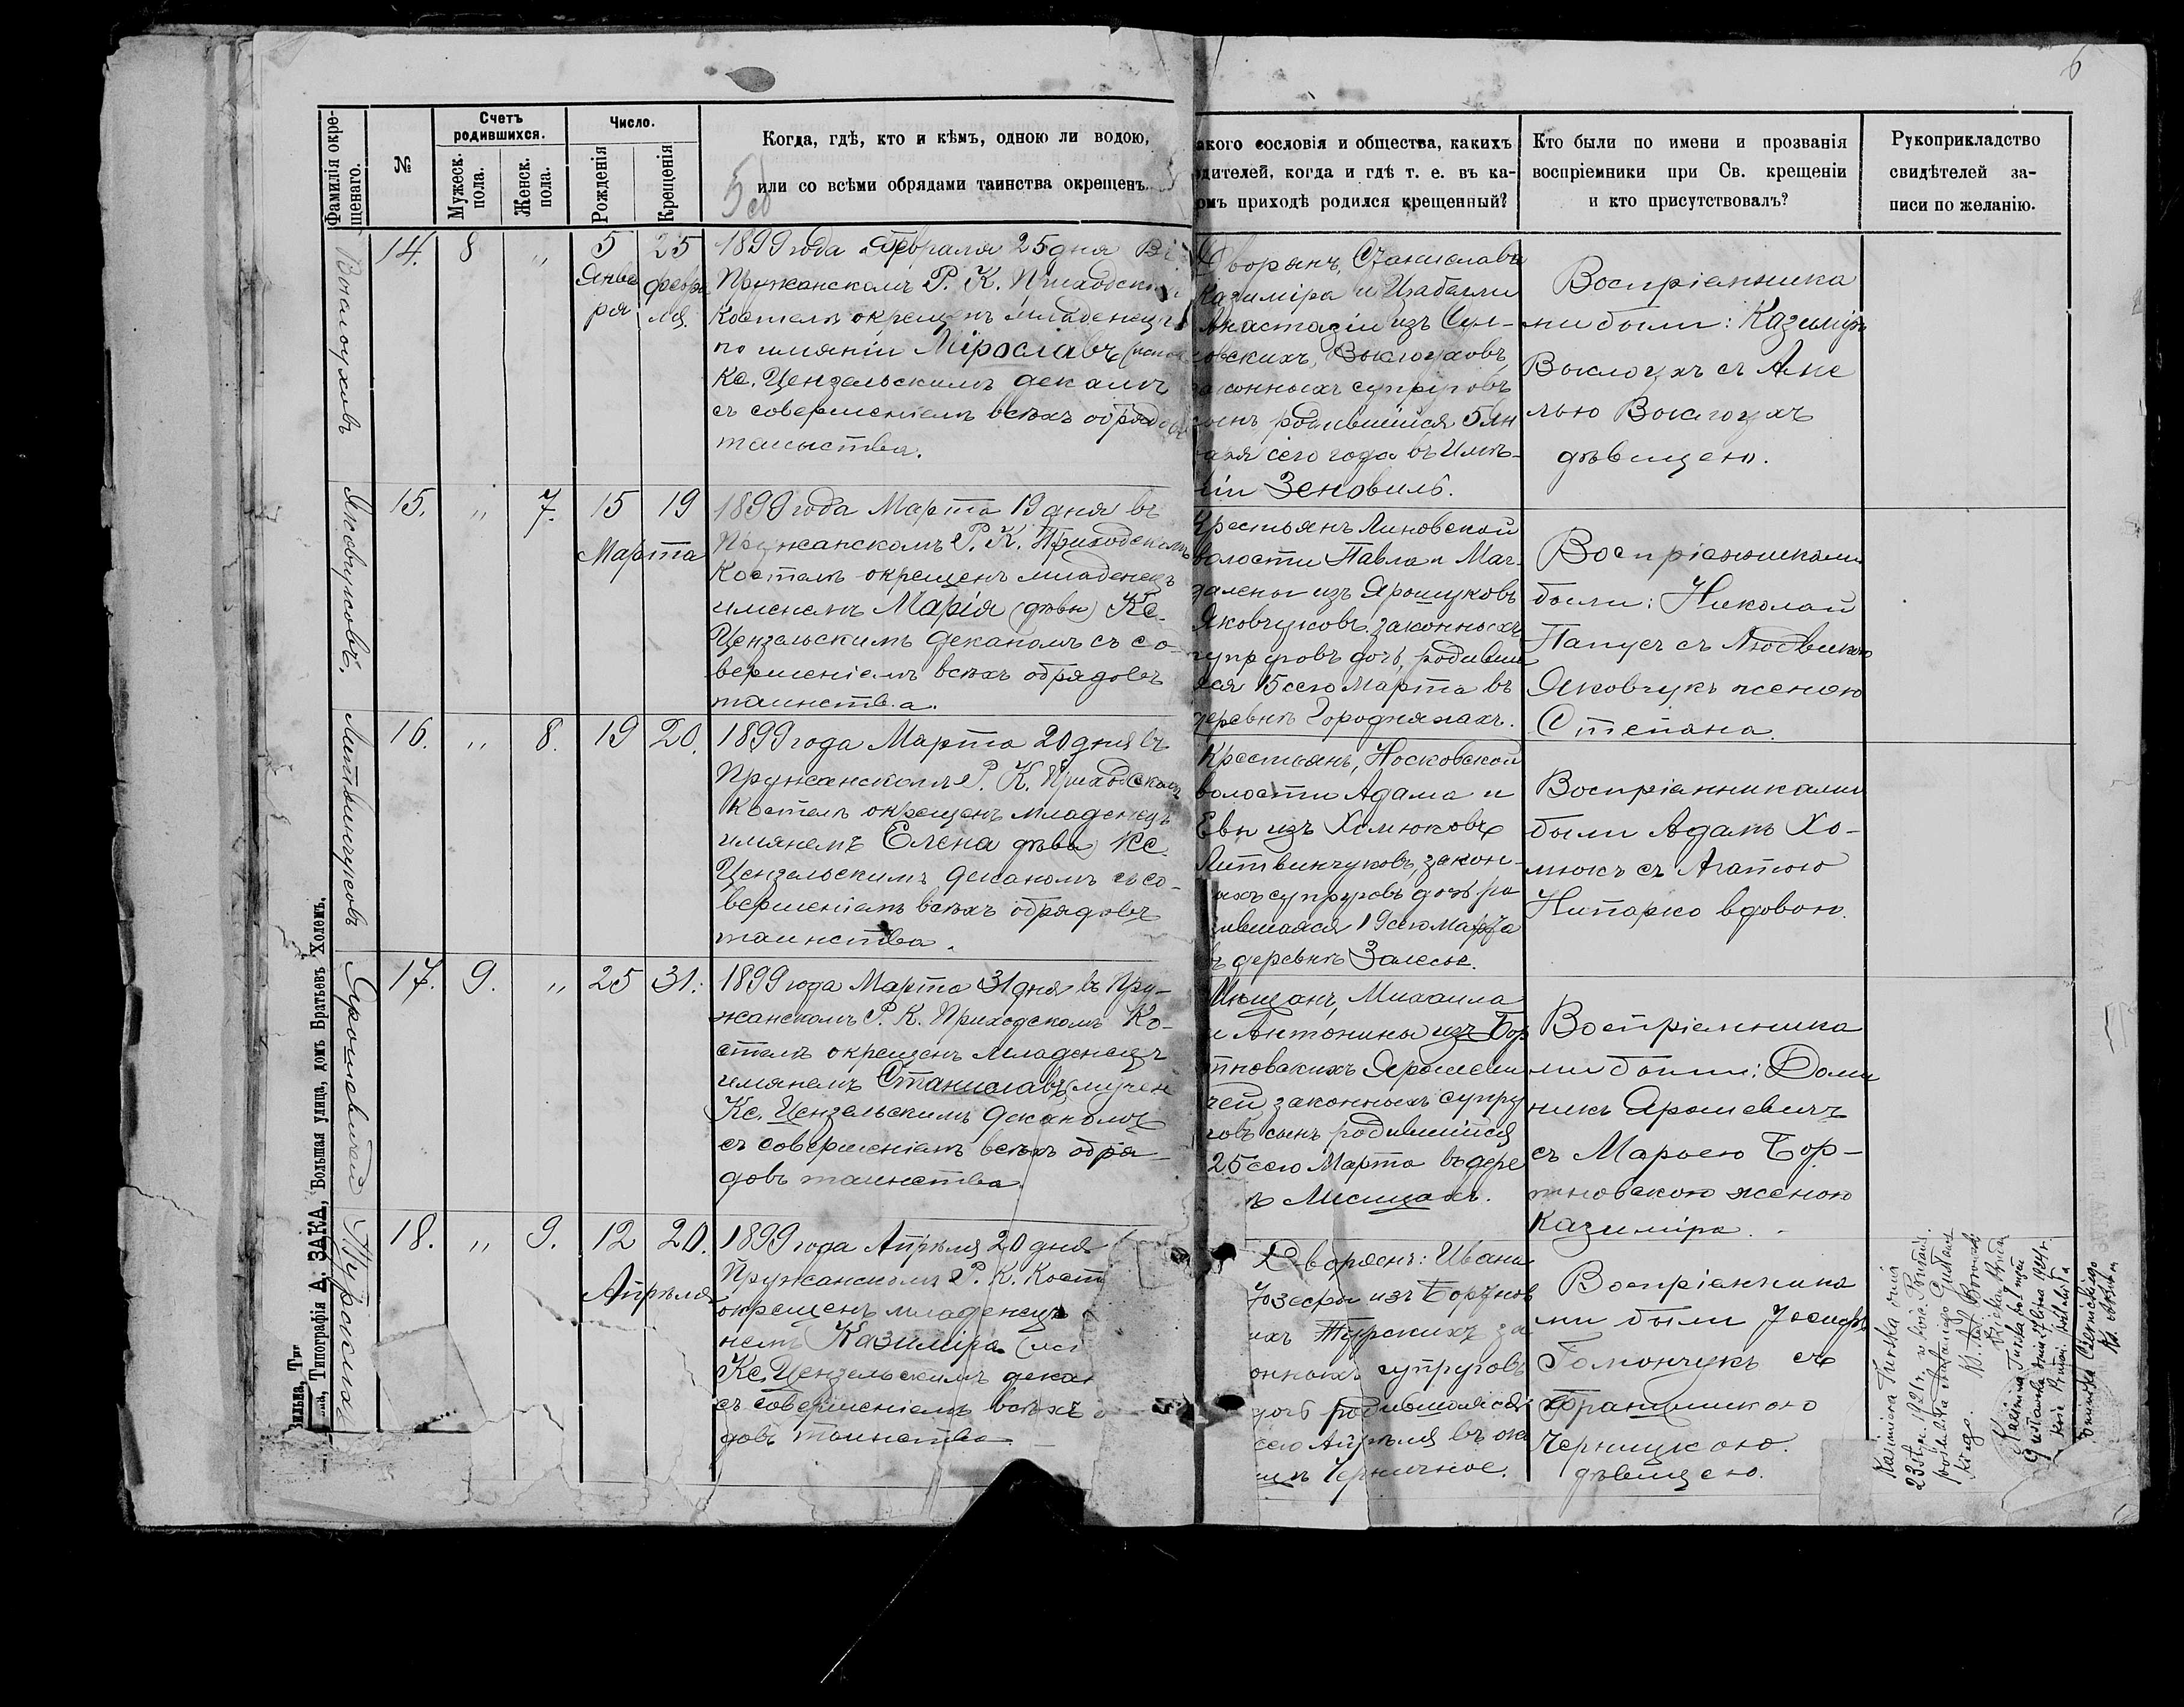 6
Фамилія окре-
щенаго.
№
Счетъ
родившихся.
Мужеск.
пола.
Женск.
пола.
Число.
Рожденія
Крещенія
Когда, гдѣ, кто и кѣмъ, одною ли водою,
или со всѣми обрядами таинства окрещенъ.
акого сословія и общества, какихъ
дителей, когда и гдѣ т. е. въ ка-
омъ приходѣ родился крещенный?
Кто были по имени и прозванія
воспріемники при Св. крещеніи
и кто присутствовалъ?
Рукоприкладство
свидѣтелей за-
писи по желанію.
14.
8
„
5
Янва
ря
25
февра
ля.
1899 года Февраля 25 дня
Пружанскомъ Р. К. Приходском
Костелѣ окрещенъ младенецъ
по имяніи Мірославъ
Кс. Цензельскимъ декам
съ совершеніемъ всѣхъ обрядовъ
таинства.
Дворянъ, Станислава
Казиміра и Изабелли
Анастазіи из Сул-
овскихъ, Выслоуховъ
законныхъ супруговъ
сынъ родившійся 5 Ян
варя сего года въ Имѣ-
ніи Зеновиль.
Воспріемника
ми были: Казимір
Выслоухъ съ Ане
лью Выслоухъ
дѣвицею.
Яковчуковъ.
15.
„
7.
15
19
Марта
1899 года Марта 19 дня въ
Пружанскомъ Р. К. Приходскомъ
Костелѣ окрещенъ младенецъ
именемъ Марія (дѣвы) Кс.
Цензельскимъ деканомъ съ со-
вершеніемъ всѣхъ обрядовъ
таинства.
Крестьянъ Линовской
волости Павла и Маг-
далены изъ Ярошуковъ
Яковчуковъ законныхъ
супруговъ дочь, родивша
яся 15 сего Марта въ
деревнѣ Городнянахъ.
Воспріемниками
были: Николай
Папусъ съ Людвикою
Яковчукъ женою
Степана
Литвинчуковъ
16.
„
8.
19
20.
1899 года Марта 20 дня въ
Пружанскомъ Р. К. Приходскомъ
Костелѣ окрещенъ младенецъ
имянемъ Елена дѣва Кс.
Цензельскимъ деканомъ съ со-
вершеніемъ всѣхъ обрядовъ
таинства.
Крестьянъ, Носковской
волости Адама и
Евы изъ Хомюковъ
Литвинчуковъ закон-
ыхъ супруговъ дочь ро
дившаяся 19 сего Марта
въ деревнѣ Залесье.
Воспріемниками
были Адамъ Хо-
мюкъ съ Агатою
Нипарко вдовою.
Ярошевичей
17.
9.
„
25
31.
1899 года Марта 31 дня въ Пру-
жанскомъ Р. К. Приходскомъ Ко-
стелѣ окрещенъ младенецъ
имянемъ Станиславъ (мучен
Кс. Цензельскимъ деканомъ
съ совершеніемъ всѣхъ обря-
довъ таинства.
Мѣщанъ, Михаила
и Антонины изъ Бор
тновскихъ Ярошеви
чей законныхъ супру
говъ сынъ родившійся
25 сего Марта въ дере
ѣ Лисицахъ.
Воспріемника
ми были: Доми
никъ Ярошевичъ
съ Марьею Бор-
тновскою женою
Казиміра.
Турскихъ
18.
„
9.
12
20.
Апрѣля
1899 года Апрѣля 20 дня
Пружанскомъ Р. К. Кост
окрещенъ младенецъ
немъ Казиміра
Кс. Цензельскимъ декан
съ совершеніемъ всѣхъ о
довъ таинства
Дворянъ: Ивана
Юзефы изъ Бортнов
ихъ Турскихъ за
онныхъ супруговъ
дочь родившаяся
сего Апрѣля въ
Черничное.
Воспріемника
ми были Іосифъ
Гомончукъ съ
Францишкою
Черницкою.
дѣвицею.
Kazimiera Turska dnia
Типографія А. ЗАКА, Большая улица, домъ Братьевъ Холемъ.
Вильна, Ти